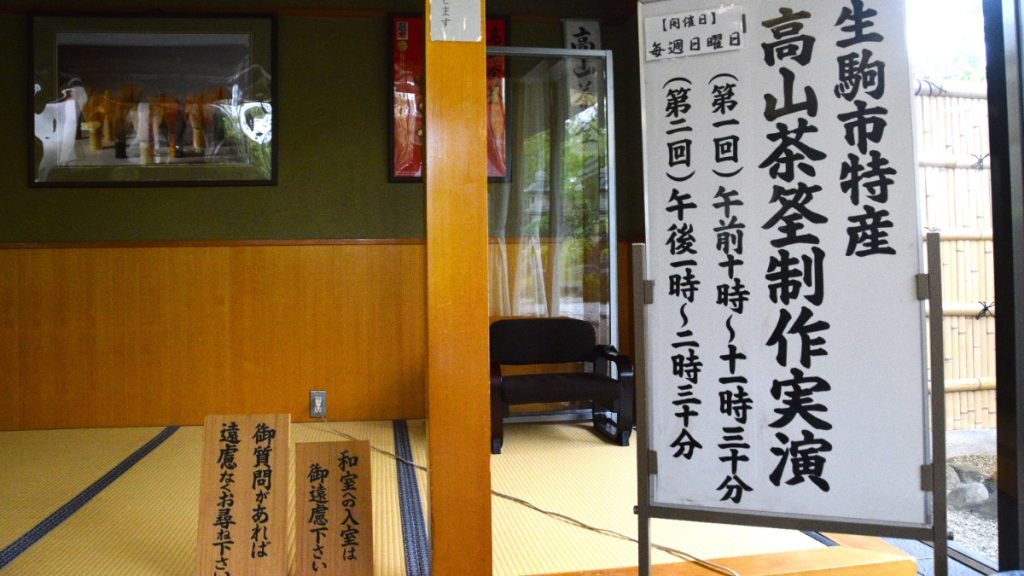 生駒市特産
高山茶筌制作実演
【開催日】
毎週日曜日
(第一回)午前十時～十一時三十分
(第二回)午後一時～二時三十分
します
高山茶
御質問があれば
遠慮なくお尋ね下さい
和室への入室は
御遠慮下さい